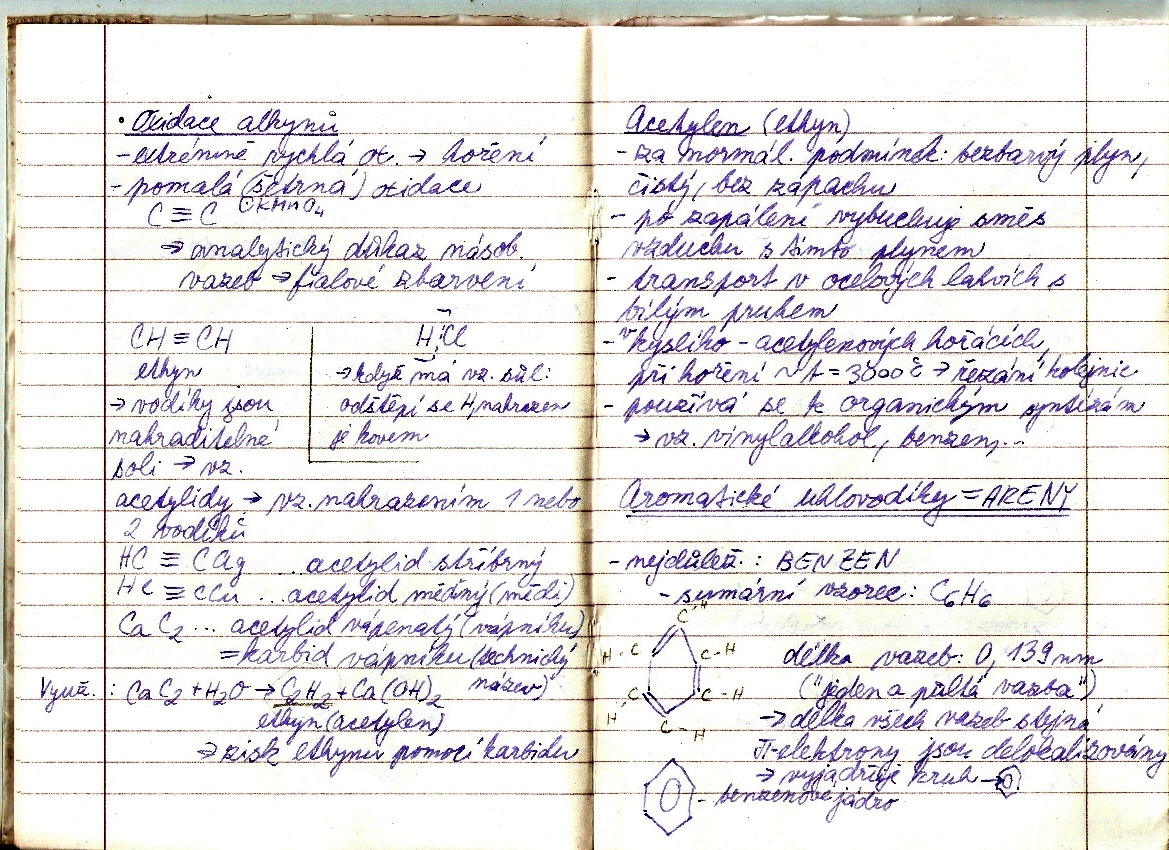 • Oxidace alkynů
- extrémně rychlá ox. → hoření
- pomalá (šetrná) oxidace
C ≡ C KMnO4
⇒ analytický důkaz násob.
vazeb → fialové zbarvení
CH ≡ CH
ethyn
→ vodíky jsou
nahraditelné
soli → vz.
HCl
→ když má vz. sůl:
odštěpí se H, nahrazen
je kovem
acetylidy → vz. nahrazením 1 nebo
2 vodíků
HC ≡ CAg ...acetylid stříbrný
HC ≡ CCu ...acetylid měďný (mědi)
CaC2 ... acetylid vápenatý (vápníku)
= karbid vápníku (technický
název)
Využ. : CaC2 + H2O → C2H2 + Ca(OH)2
ethyn (acetylen)
→ zisk ethynu pomocí karbidu
Acetylen (ethyn)
- za normál. podmínek: bezbarvý plyn,
čistý, bez zápachu
- po zapálení vybuchuje směs
vzduchu s tímto plynem
- transport v ocelových lahvích s
bílým pruhem
- v kyslíko - acetylenových hořácích,
při hoření ~ t = 3000°C → řezání kolejnic
- používá se k organickým syntézám
→ vz. vinylalkohol, benzen,...
Aromatické uhlovodíky = ARENY
- nejdůlež.: BENZEN
- sumární vzorec: C6H6
C H
H - C
C - H
C
H
C - H
C - H
délka vazeb: 0,139 nm
("jeden a půltá vazba")
→ délka všech vazeb stejná
π-elektrony jsou delokalizovány
→ vyjadřuje kruh →
- benzenové jádro